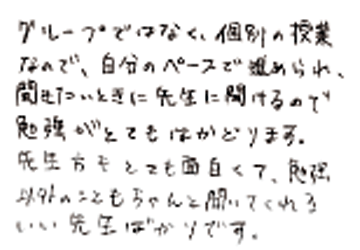 グループではなく、個別の授業
なので、自分のペースで進められ、
聞きたいときに先生に聞けるので
勉強がとてもはかどります。
先生方もとても面白くて、勉強
以外のこともちゃんと聞いてくれる
いい先生ばかりです。